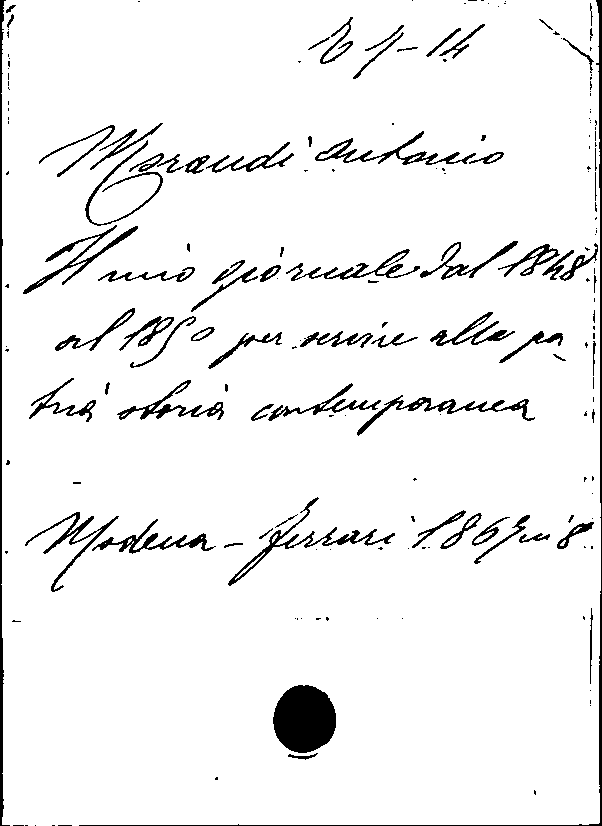 Morandi Antonio
Il mio giornale dal 1848
al 1850 per servire alla pa-
tria storia contemporanea
Modena - Ferrari 1867 in 8